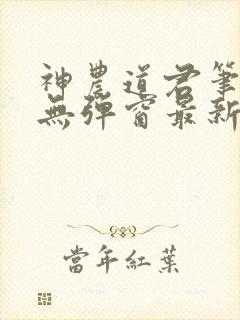 神農道君筆
無彈窗最新
當年紅葉